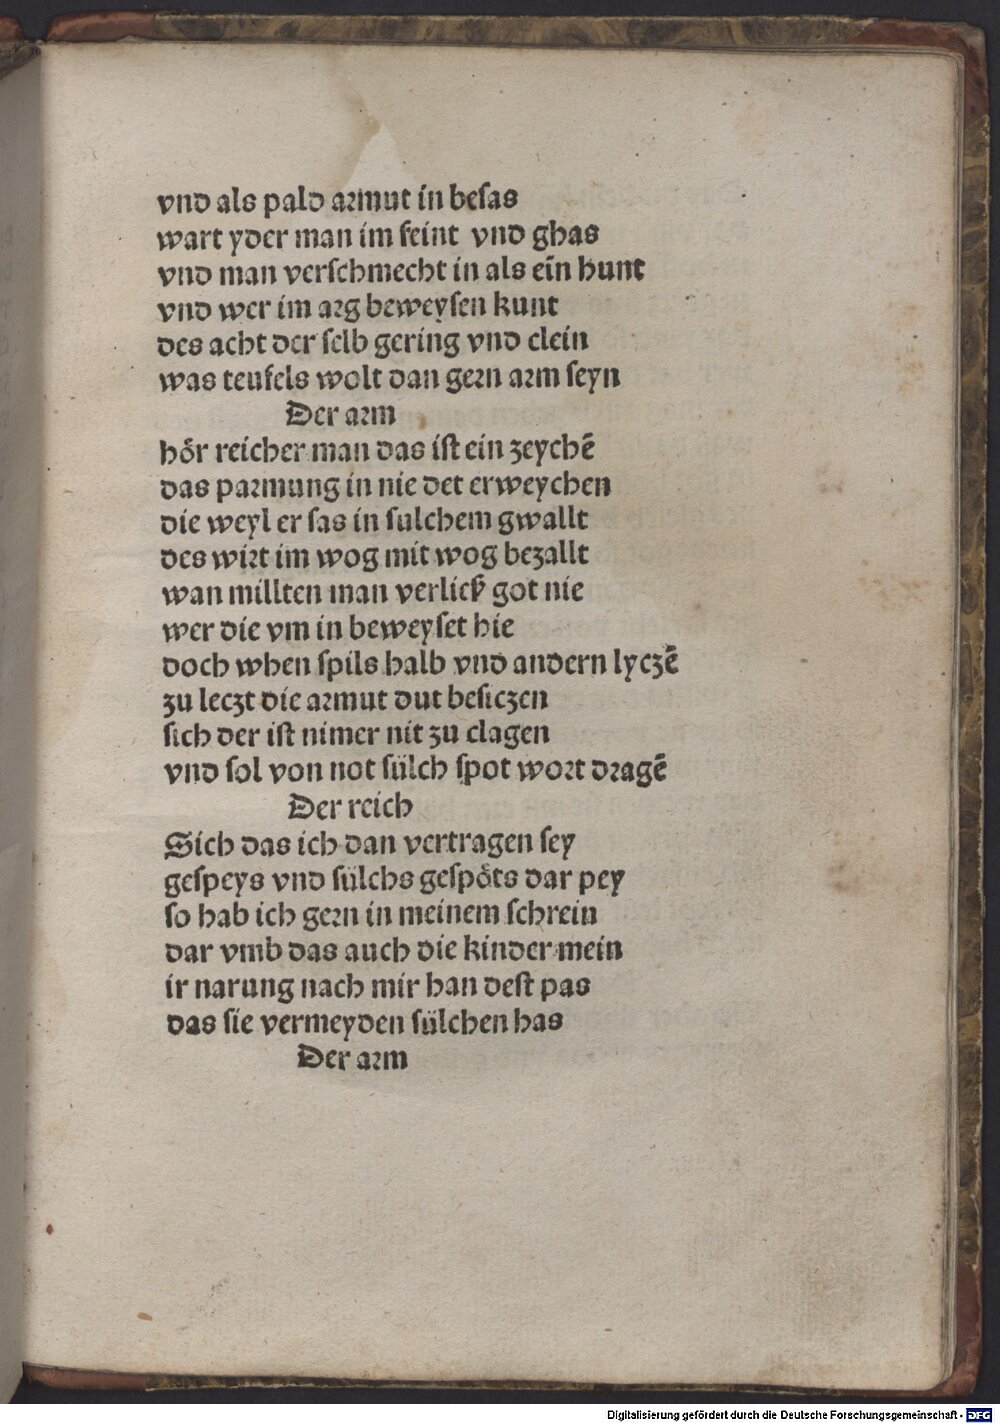 vnd als pald armut in besas
wart yder man im feint vnd ghas
vnd man verschmecht in als eīn hunt
vnd wer im arg beweysen kunt
des acht der selb gering vnd clein
was teufels wolt dan gern arm seyn
Der arm
hőr reicher man das ist ein zeychē
das parmung in nie det erweychen
die weyl er sas in sulchem gwallt
des wirt im wog mit wog bezallt
wan millten man verlick got nie
wer die vm in beweyset hie
doch when spils halb vnd andern lyczē
zu leczt die armut dut besiczen
sich der ist nimer nit zu clagen
vnd sol von not sülch spot wort dragē
Der reich
Sich das ich dan vertragen sey
gespeys vnd sülchs gespöts dar pey
so hab ich gern in meinem schrein
dar vmb das auch die kinder mein
ir narung nach mir han dest pas
das sie vermeyden sülchen has
Der arm
Digitalisierung gefördert durch die Deutsche Forschungsgemeinschaft - DFG